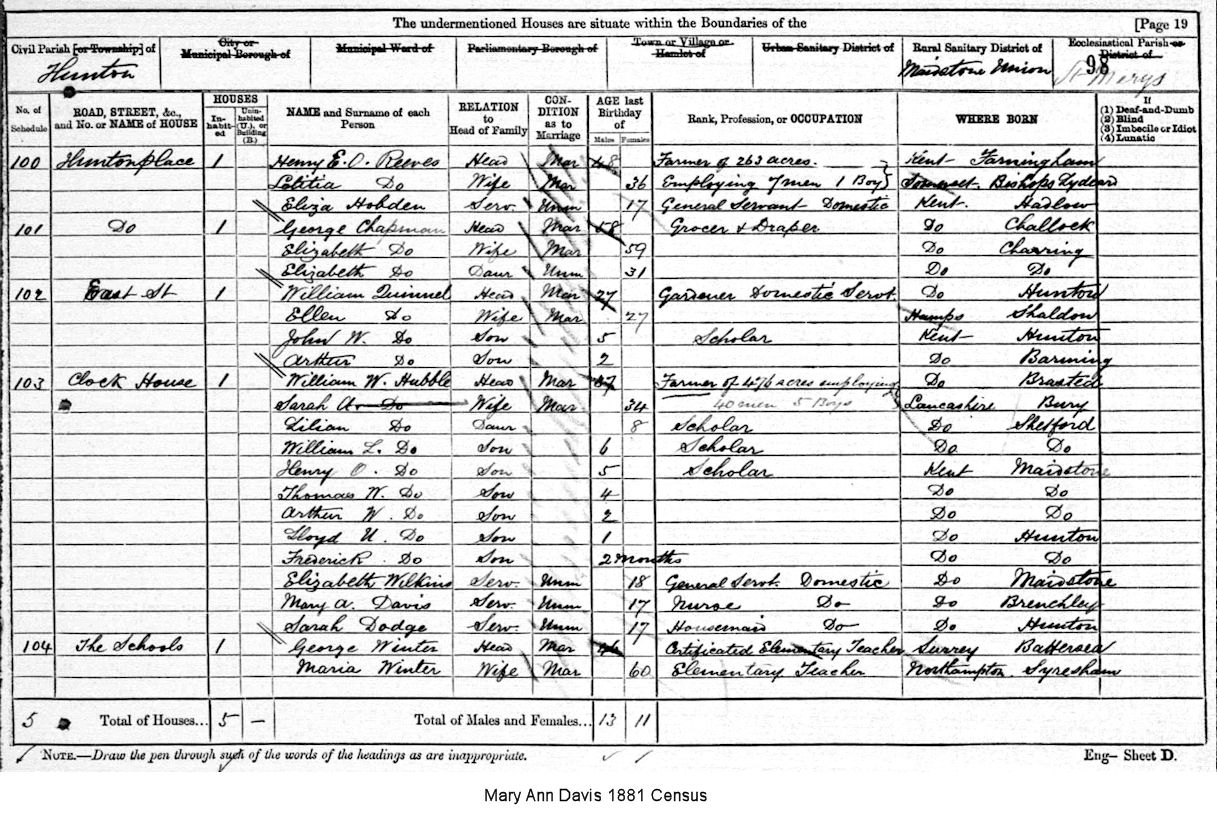 The undermentioned Houses are situate within the Boundaries of the [Page 19
Civil Parish [or Township] of City or Municipal Borough of Municipal Ward of Parliamentary Borough of Town or Village or Hamlet of Urban Sanitary District of Rural Sanitary District of Ecclesiastical Parish or District of
Hunton Maidstone Union 98 St Marys
No. of Schedule ROAD, STREET, &c., and No. or NAME of HOUSE HOUSES Inhabited Uninhabited (U.), or Building (B.) NAME and Surname of each Person RELATION to Head of Family CONDITION as to Marriage AGE last Birthday of Males Females Rank, Profession, or OCCUPATION WHERE BORN If (1) Deaf-and-Dumb (2) Blind (3) Imbecile or Idiot (4) Lunatic
100 Huntonplace 1 Henry E. O. Reeves Head Mar 48 Farmer of 263 acres. Kent Farningham
Letitia Do Wife Mar 36 Employing 7 men 1 Boy Somerset. Bishops Lydeard
Eliza Hobden Serv. Unm 17 General Servant Domestic Kent. Hadlow
101 Do 1 George Chapman Head Mar 58 Grocer & Draper Do Challock
Elizabeth Do Wife Mar 59 Do Charring
Elizabeth Do Daur Unm 31 Do Do
102 East St 1 William Quinnel Head Mar 27 Gardener Domestic Servt. Do Hunton
Ellen Do Wife Mar 27 Hamps Shaldon
John W. Do Son 5 Scholar Kent Hunton
Arthur Do Son 2 Do Barming
103 Clock House 1 William W. Hubble Head Mar 37 Farmer of 476 acres employing Do Brasted
Sarah A. Do Wife Mar 34 40 men 5 Boys Lancashire Bury
Lilian Do Daur 8 Scholar Do Shefford
William L. Do Son 6 Scholar Do Do
Henry O. Do Son 5 Scholar Kent Maidstone
Thomas W. Do Son 4 Do Do
Arthur W. Do Son 2 Do Do
Lloyd U. Do Son 1 Do Hunton
Frederick Do Son 2 months Do Do
Elizabeth Wilkins Serv. Unm 18 General Servt. Domestic Do Maidstone
Mary A. Davis Serv. Unm 17 Nurse Do Do Brenchley
Sarah Dodge Serv. Unm 17 Housemaid Do Do Hunton
104 The Schools 1 George Winter Head Mar Certificated Elementary Teacher Surrey Battersea
Maria Winter Wife Mar 60 Elementary Teacher Northampton. Syresham
5 Total of Houses... 5 — Total of Males and Females... 13 11
NOTE.—Draw the pen through such of the words of the headings as are inappropriate. Eng- Sheet D.
Mary Ann Davis 1881 Census